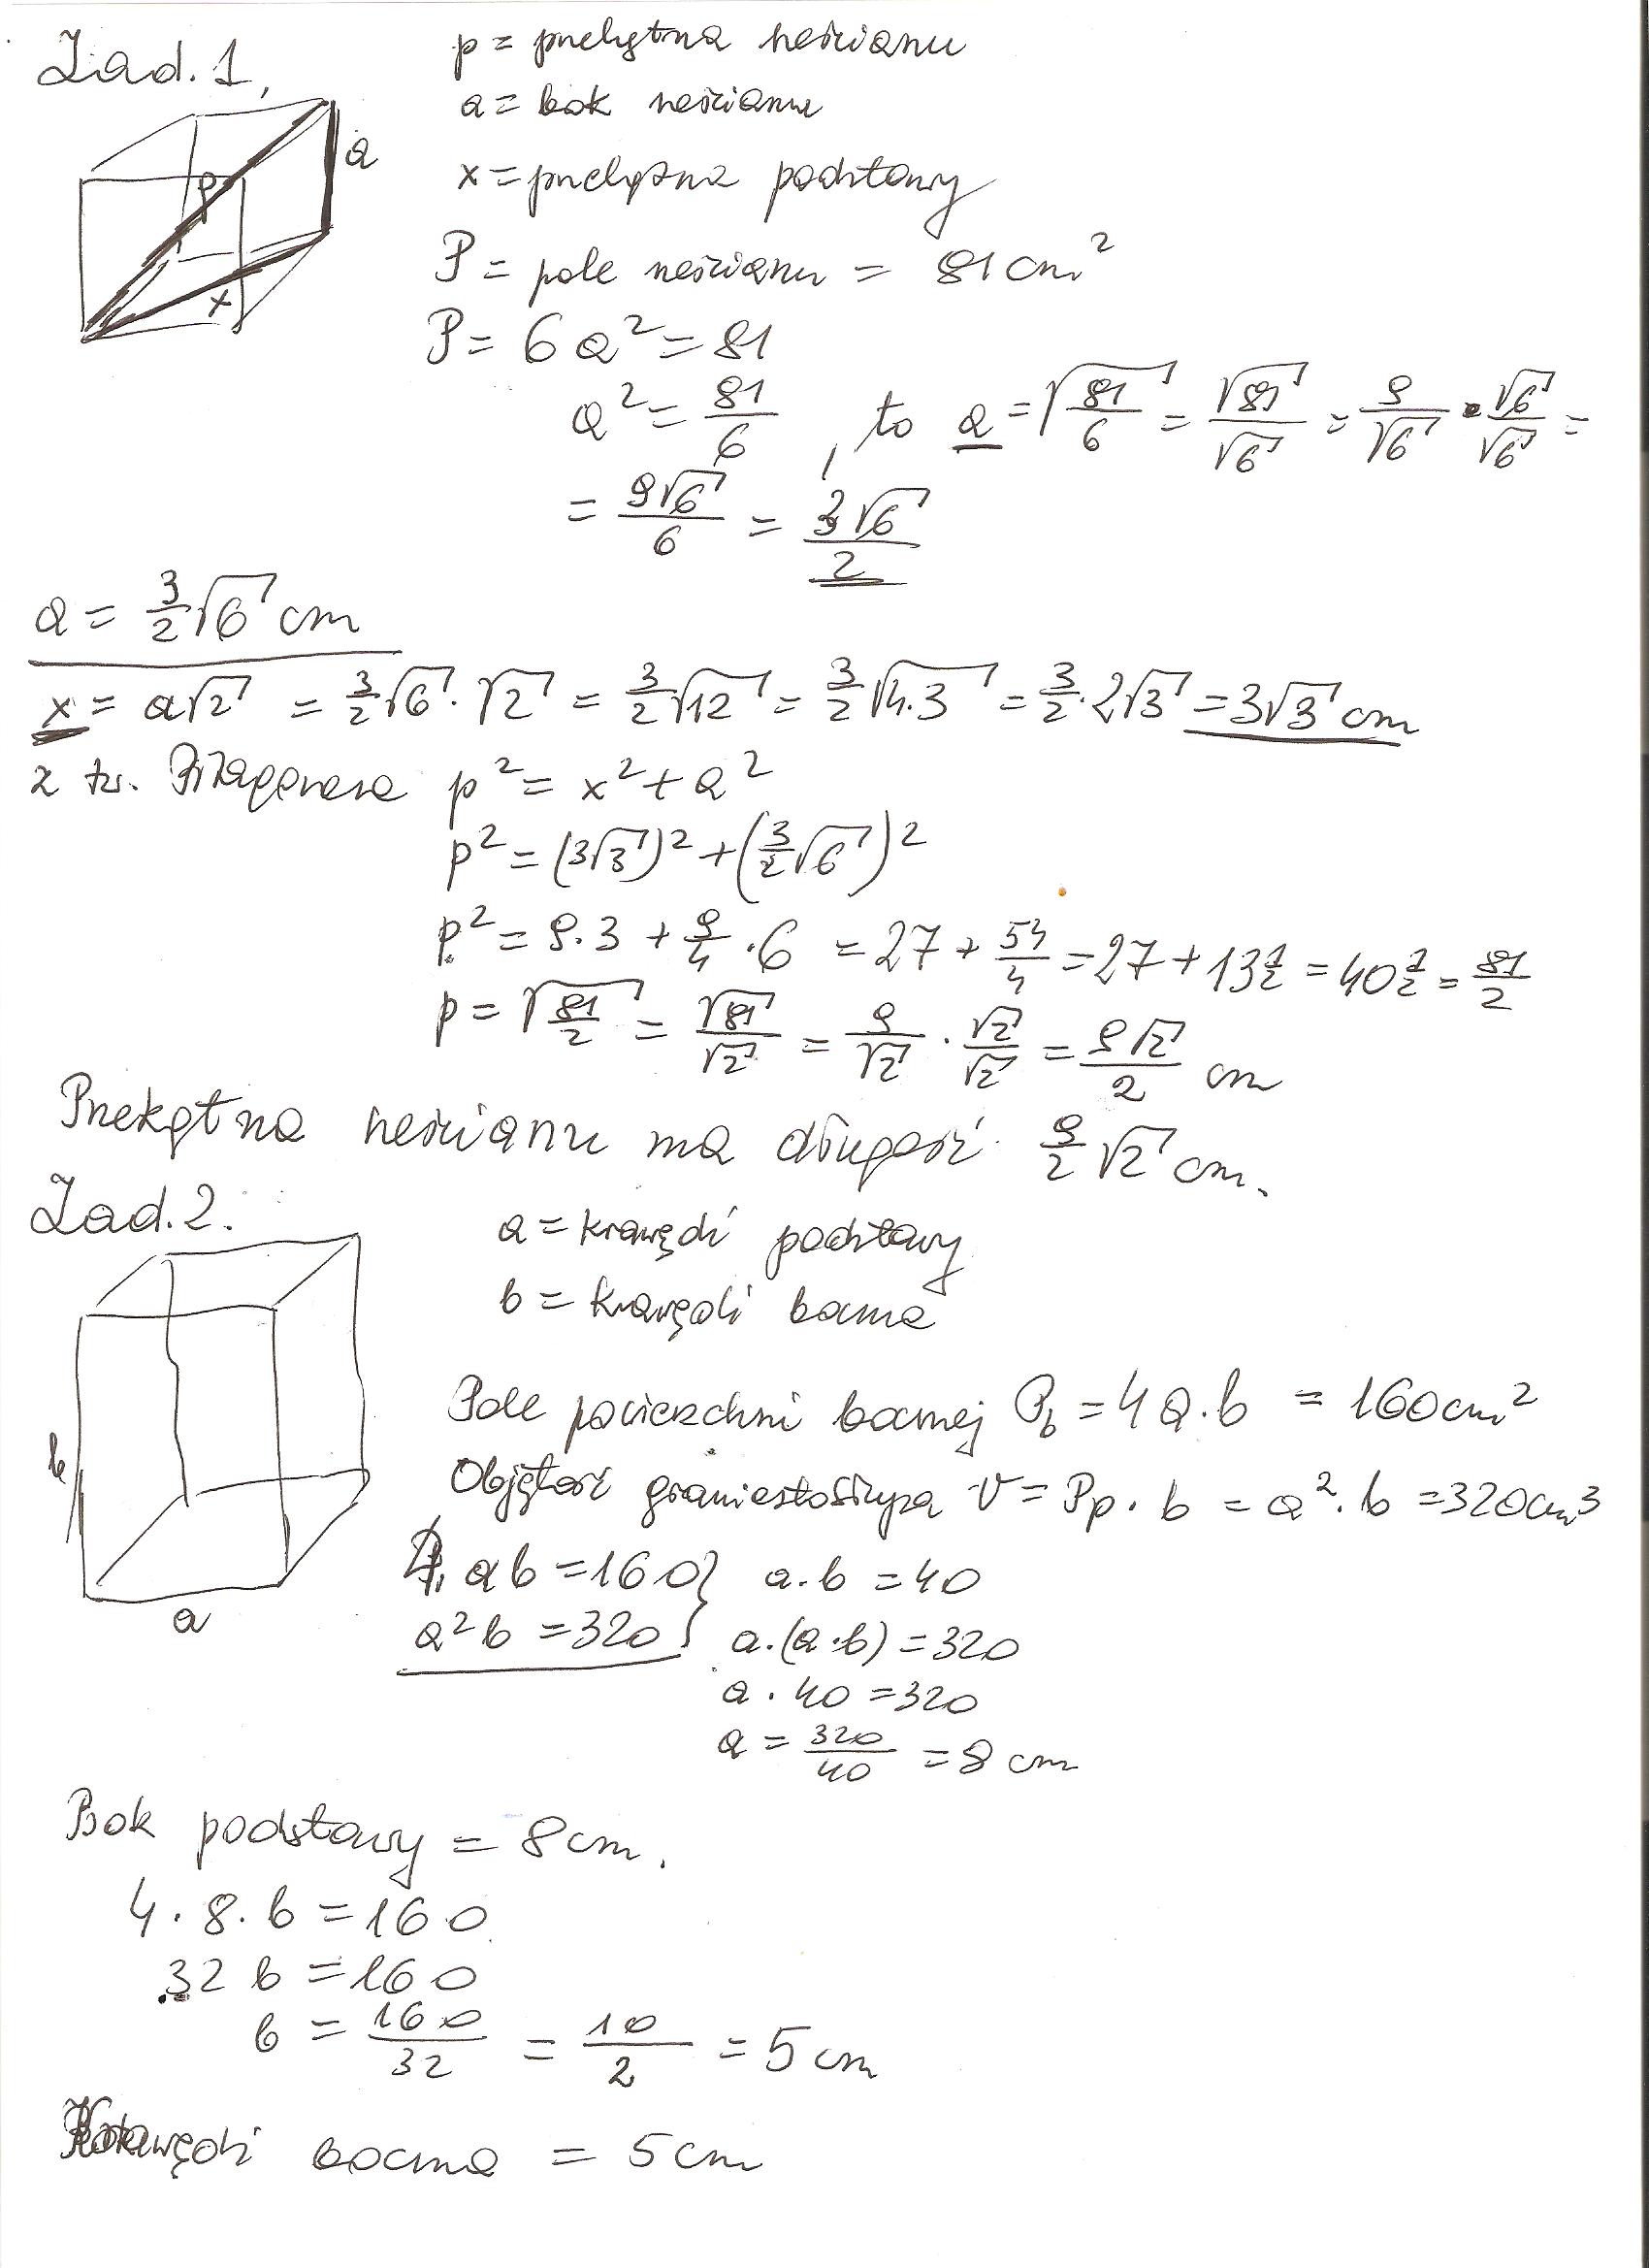 Zad. 1,
p = przekątna sześcianu
a = bok sześcianu
x = przekątna podstawy
a
p
x
P = pole sześcianu = 81 cm²
P = 6a² = 81
a² = 81/6, to a = √(81/6) = √81/√6 = 9/√6 · √6/√6 =
= 9√6/6 = 3√6/2
a = 3/2 √6 cm
x = a√2 = 3/2 √6 · √2 = 3/2 √12 = 3/2 √4·3 = 3/2 · 2√3 = 3√3 cm
z tw. Pitagorasa p² = x² + a²
p² = (3√3)² + (3/2 √6)²
p² = 9·3 + 9/4 · 6 = 27 + 54/4 = 27 + 13 1/2 = 40 1/2 = 81/2
p = √(81/2) = √81/√2 = 9/√2 · √2/√2 = 9√2/2 cm
Przekątna sześcianu ma długość 9/2 √2 cm.
Zad. 2.
a = krawędź podstawy
b = krawędź boczna
b
a
Pole powierzchni bocznej Pb = 4a·b = 160 cm²
Objętość graniastosłupa V = Pp · b = a² · b = 320 cm³
4ab = 160 } a·b = 40
a²b = 320 } a·(a·b) = 320
a · 40 = 320
a = 320/40 = 8 cm
Bok podstawy = 8 cm.
4 · 8 · b = 160
32 b = 160
b = 160/32 = 10/2 = 5 cm
Krawędź boczna = 5 cm